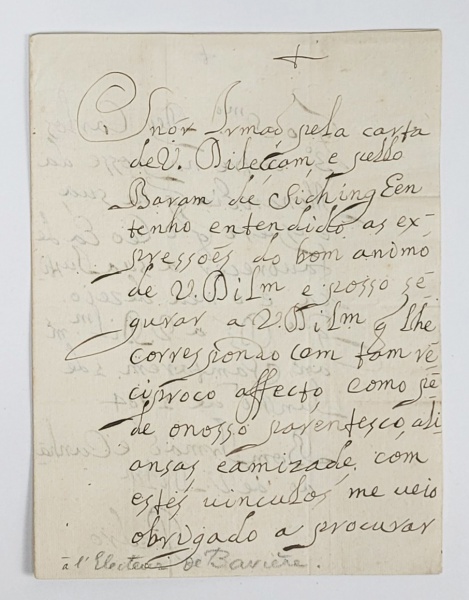 Snõr Irmaõ, pela carta
de V. Dilecçam, e pello
Baram de SichingEen
tenho entendido as ex-
pressões do bom animo
de V. DiLm e posso se-
gurar a V. DiLm q lhe
correspondo com tam re-
ciproco affecto como pe-
de onosso parentesco, ali-
ansas eamizade, com
estes vinculos me vejo
obrigado a procurar
à l'Electeur de Bavière.